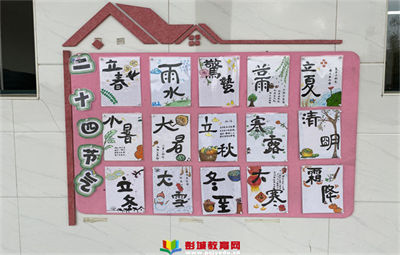 二十四节气
立春 雨水 驚蟄 立夏
小暑 大暑 立秋 寒露 清明
立冬 大雪 冬至 大寒 霜降
彭城教育网